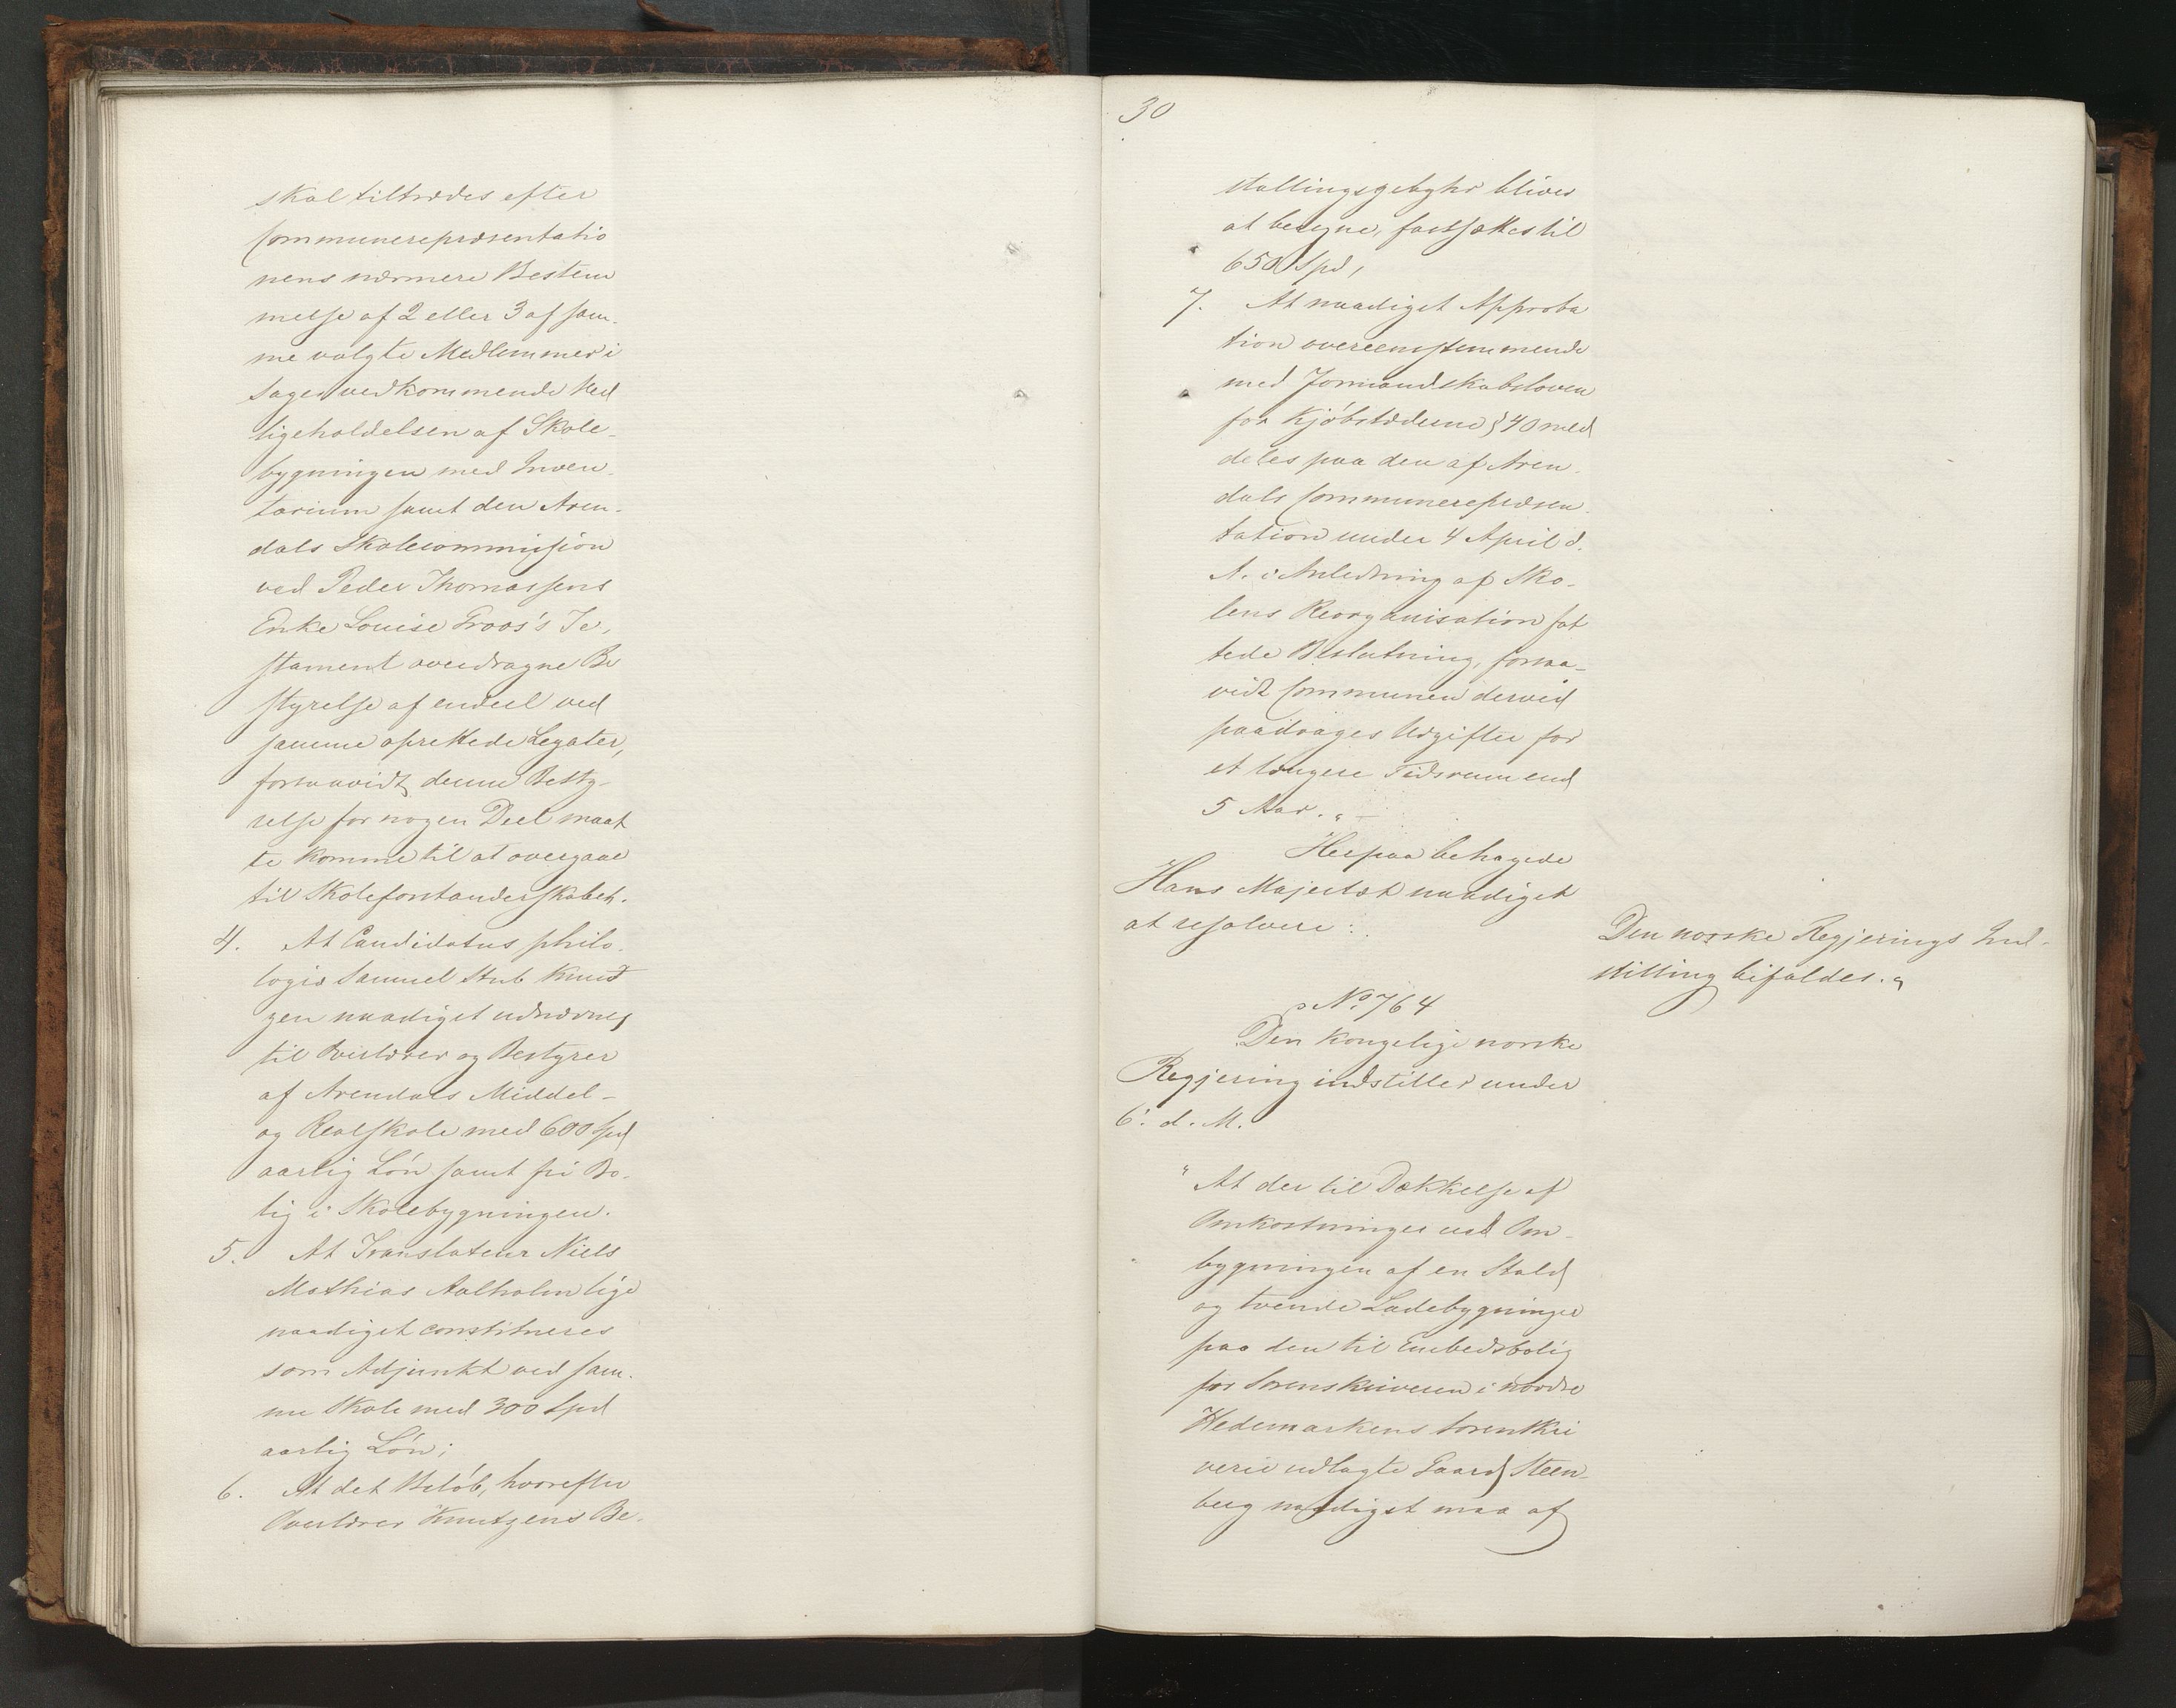 skal tiltrædes efter
Communerepræsentatio
nens nærmere Bestem
melse af 2 eller 3 af sam-
me valgte Medlemmer i
Sager vedkommende Ved
ligeholdelsen af Skole-
bygningen med Inven-
tarium samt den Aren-
dals Skolecommission
ved Peder Thomassens
Enke Louise Froos's Te-
stament overdragne Be
styrelse af endeel ved
samme oprettede Legater,
forsaavidt denne Besty-
relse for nogen Deel maat
te komme til at overgaae
til Skoleforstanderskabet.
4. At Candidatus philo-
logiæ Samuel Stub Knud
zen naadigst udnævnes
til Overlærer og Bestyrer
af Arendals Middel-
og Realskole med 600 Spd
aarlig Løn samt fri Bo-
lig i Skolebygningen.
5. At Translateur Niels
Mathias Aalholm lige
naadigst constitueres
som Adjunkt ved sam-
me Skole med 300 Spd
aarlig Løn;
6. At det Beløb, hvorefter
Overlærer Knutzens Be-
30
stallingsgebyhr bliver
at beregne, fastsættes til
650 Spd,
7. At naadigst Approba
tion overeensstemmende
med Formandskabsloven
for Kjøbstæderne § 40 med
deles paa den af Aren-
dals Communerepræsen-
tation under 4 April d.
A. i Anledning af Sko-
lens Reorganisation fat
tede Beslutning, forsaa-
vidt Communen derved
paadrages Udgifter for
et længere Tidsrum end
5 Aar. "
Herpaa behagede
Hans Majestæt naadigst
at resolvere:
Den norske Regjerings Ind-
stilling bifaldes. "
No 764
Den kongelige norske
Regjering indstiller under
6' d. M.
" At der til Dækkelse af
Omkostninger ved Om-
bygningen af en Stald
og tvende Ladebygninger
paa den til Embedsbolig
for Sorenskriveren i nordre
Hedemarkens Sorenskri
verie udlagte Gaard Steen-
berg naadigst maa af